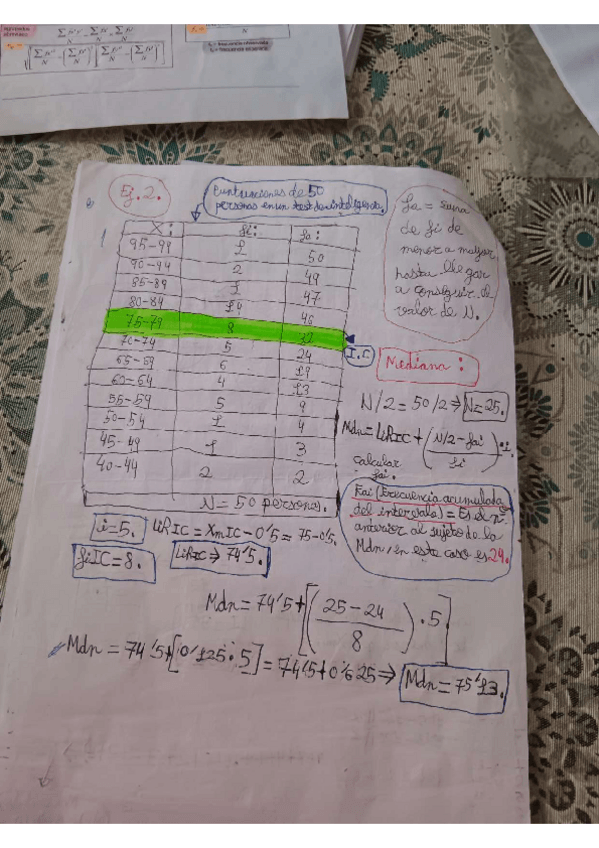 Ej. 2.
Puntuaciones de 50
personas en un test de inteligencia.
fa = suma
de fi de
menor a mayor
hasta llegar
a conseguir el
valor de N.
X: fi: fa:
95-99 1 50
90-94 2 49
85-89 1 47
80-84 14 46
75-79 8 32
70-74 5 24
65-69 6 19
60-64 4 13
55-59 5 9
50-54 1 4
45-49 1 3
40-44 2 2
N = 50 personas.
I.C
Mediana:
N/2 = 50/2 ⇒ N=25.
Mdn = LiRIC + (N/2 - fai / fi) · i.
calcular
fai.
Fai (Frecuencia acumulada
del intervalo) = Es el nº
anterior al sujeto de la
Mdn, en este caso es 24.
i = 5. LiRIC = XmIC - 0'5 = 75-0'5.
fiIC = 8. LiRIC ⇒ 74'5.
Mdn = 74'5 + [(25 - 24 / 8) · 5]
Mdn = 74'5 + [0'125 · 5] = 74'5 + 0'625 ⇒ Mdn = 75'13.